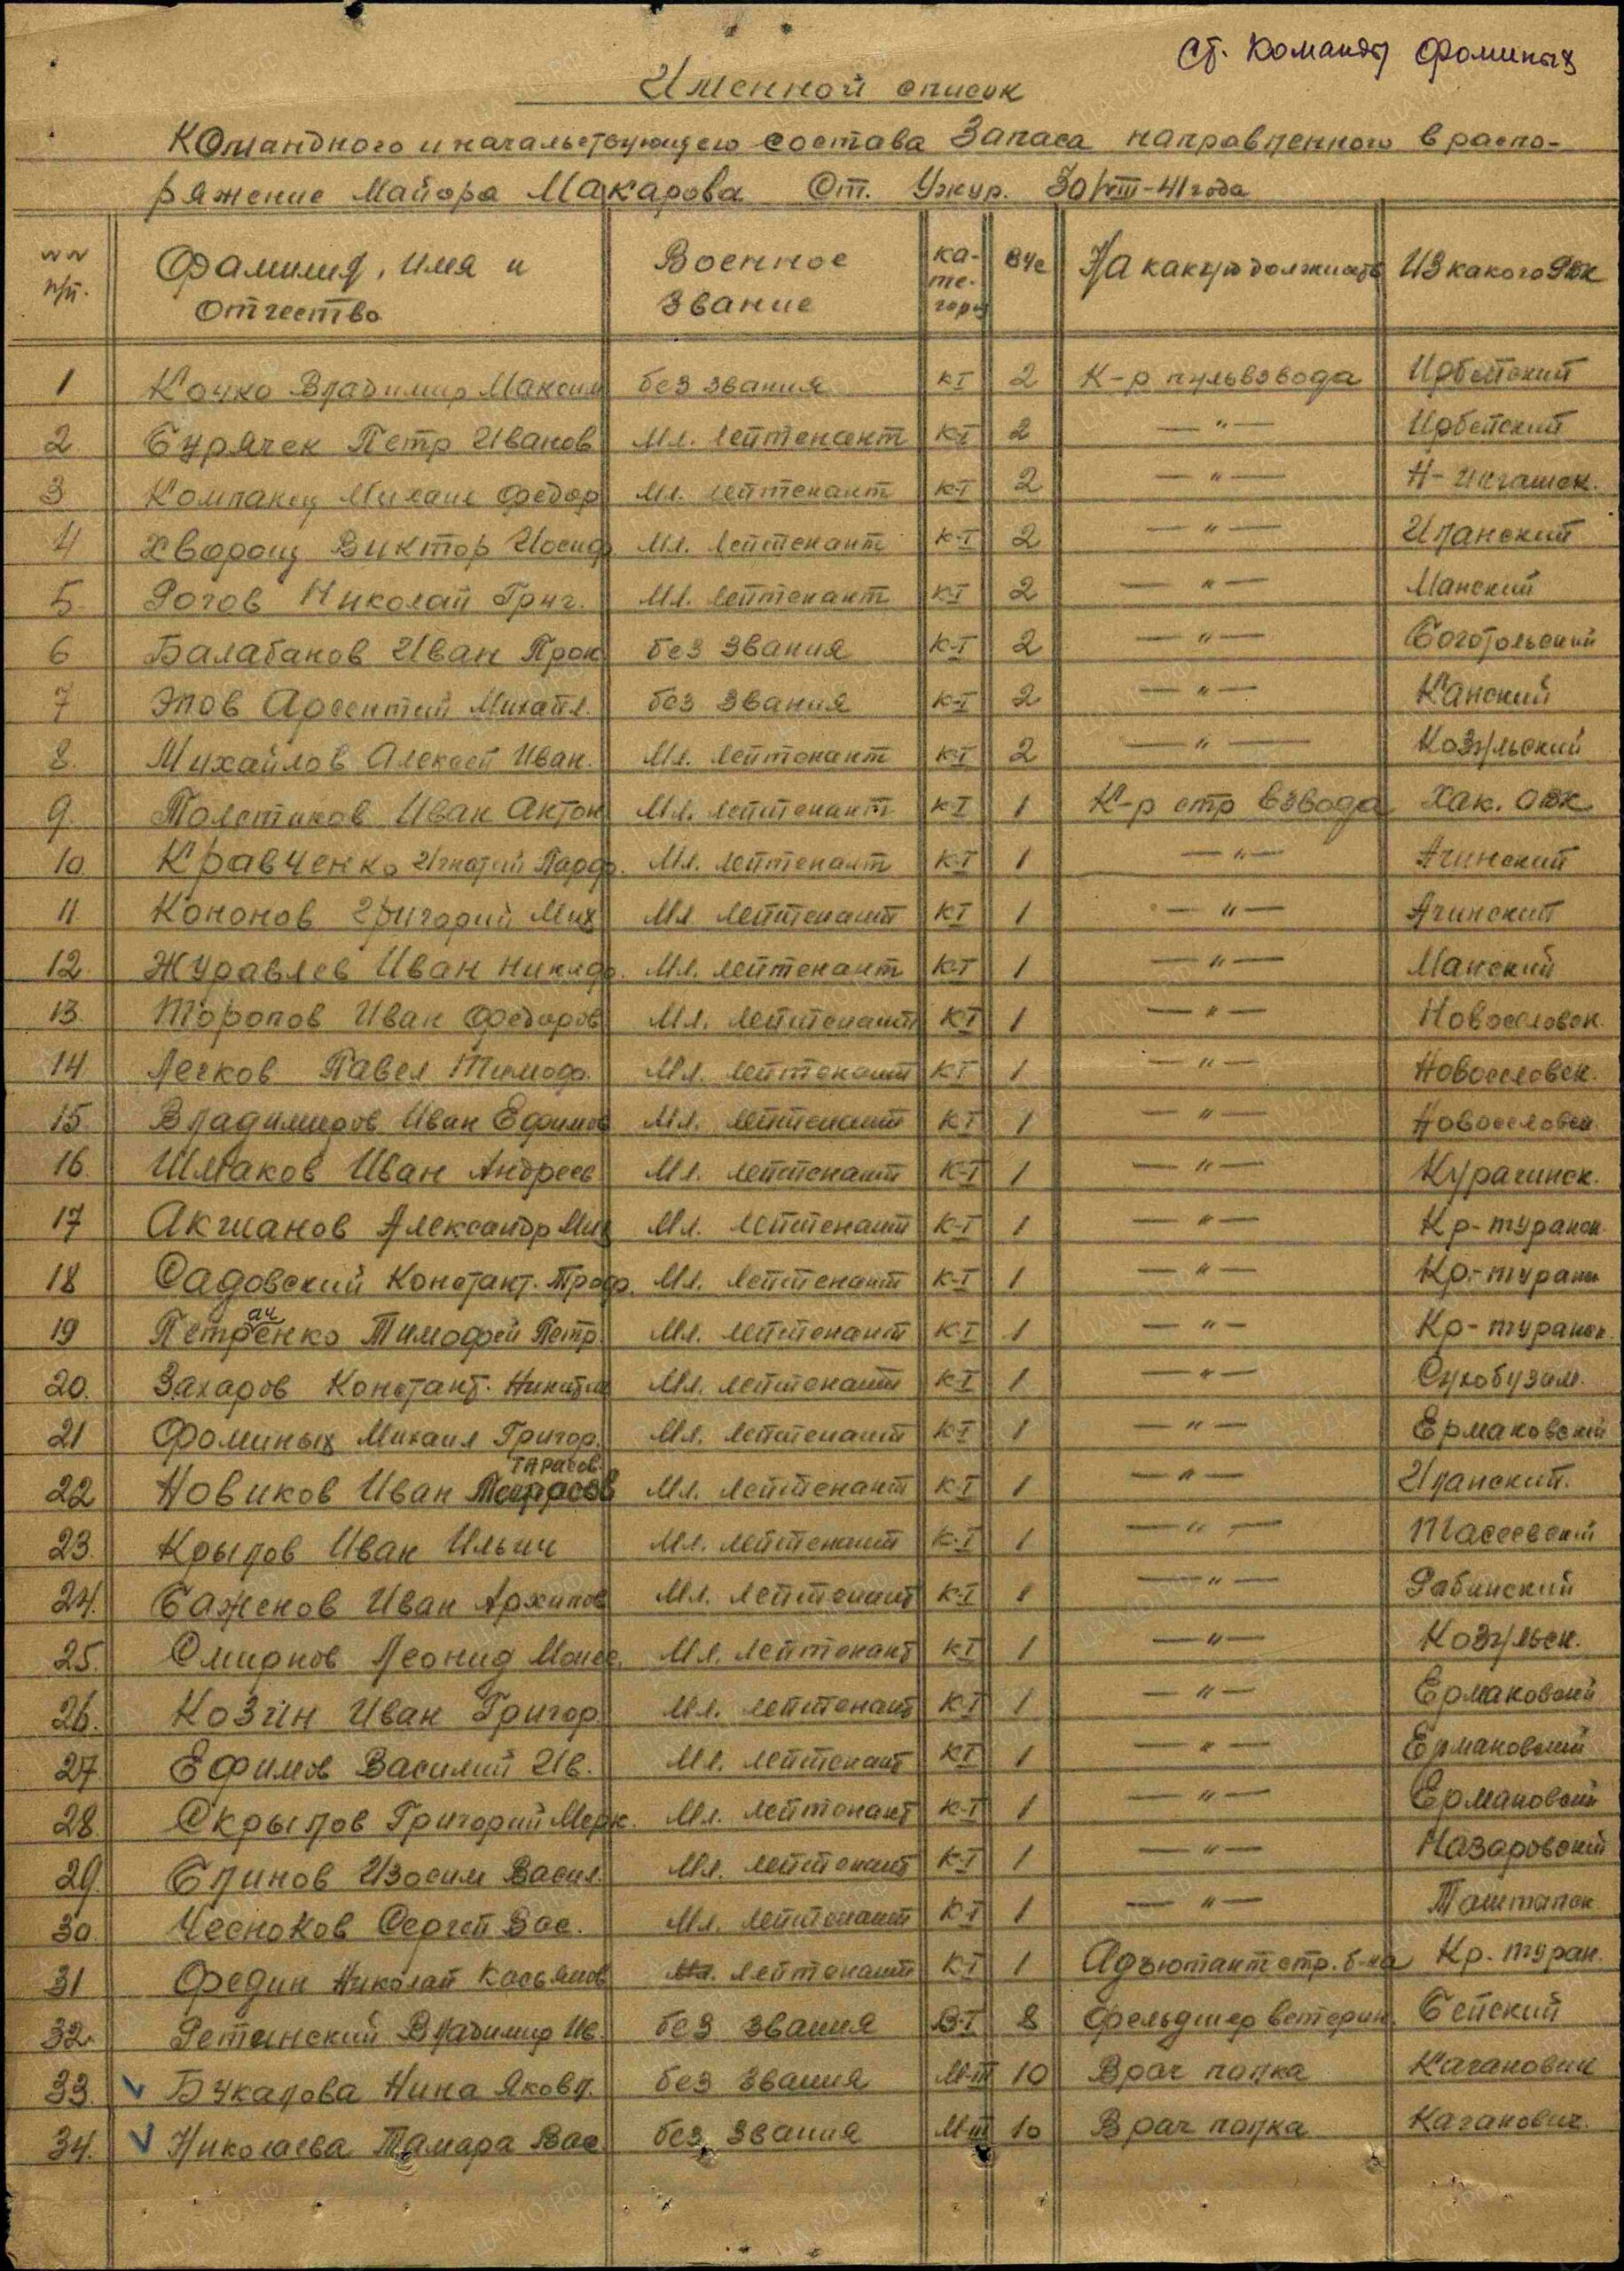 Ст. Команды Фоминых
Именной список
Командного и начальствующего состава Запаса направленного в распо-
ряжение Майора Макарова Ст. Ужур. 30/VIII-41 года
№№ п/п. Фамилия, имя и отчество Военное звание ка-те-гория ВУС На какую должность Из какого РВК
1 Кочко Владимир Максим без звания К-I 2 К-р пульвзвода Ирбейский
2 Бурячек Петр Иванов Мл. лейтенант К-I 2 — " — Ирбейский
3 Компанец Михаил Федор Мл. лейтенант К-I 2 — " — Н-Ингашск.
4 Хворощ Виктор Иосиф Мл. лейтенант К-I 2 — " — Иланский
5. Рогов Николай Григ. Мл. лейтенант К-I 2 — " — Манский
6 Балабанов Иван Прок без звания К-I 2 — " — Боготольский
7 Эпов Арсентий Михайл. без звания К-I 2 — " — Канский
8. Михайлов Алексей Иван. Мл. лейтенант К-I 2 — " — Козульский
9. Толстиков Иван Антон Мл. лейтенант К-I 1 К-р стр взвода Хак. ОВК
10. Кравченко Игнатий Парф. Мл. лейтенант К-I 1 — " — Ачинский
11 Кононов Григорий Мих Мл. лейтенант К-I 1 — " — Ачинский
12. Журавлев Иван Никиф. Мл. лейтенант К-I 1 — " — Манский
13. Торопов Иван Федоров Мл. лейтенант К-I 1 — " — Новоселовск.
14 Лечков Павел Тимоф. Мл. лейтенант К-I 1 — " — Новоселовск.
15. Владимиров Иван Ефимов Мл. лейтенант К-I 1 — " — Новоселовск.
16. Шмаков Иван Андреев Мл. лейтенант К-I 1 — " — Курагинск.
17 Акчианов Александр Мих Мл. лейтенант К-I 1 — " — Кр-туранск.
18 Садовский Констант. Троф. Мл. лейтенант К-I 1 — " — Кр.-туранск
ач
19 Петренко Тимофей Петр. Мл. лейтенант К-I 1 — " — Кр-туранск.
20. Захаров Констант. Никитич Мл. лейтенант К-I 1 — " — Сухобузим.
21 Фоминых Михаил Григор. Мл. лейтенант К-I 1 — " — Ермаковский
Тарасов.
22 Новиков Иван Тарасов Мл. лейтенант К-I 1 — " — Иланский.
23. Крылов Иван Ильич Мл. лейтенант К-I 1 — " — Тасеевский
24. Баженов Иван Архипов Мл. лейтенант К-I 1 — " — Рыбинский
25. Смирнов Леонид Моисе. Мл. лейтенант К-I 1 — " — Козульск.
26. Козин Иван Григор. Мл. лейтенант К-I 1 — " — Ермаковский
27. Ефимов Василий Ив. Мл. лейтенант К-I 1 — " — Ермаковский
28. Скрылов Григорий Мерк. Мл. лейтенант К-I 1 — " — Ермаковский
29. Блинов Изосим Васил. Мл. лейтенант К-I 1 — " — Назаровский
30. Чесноков Сергей Вас. Мл. лейтенант К-I 1 — " — Таштыпск
31 Федин Николай Касьянов Мл. лейтенант К-I 1 Адъютант стр. б-на Кр. туран.
32. Ретинский Владимир Ив. без звания В-I 8 Фельдшер ветерин. Бейский
33. V Букалова Нина Яковл. без звания М-III 10 Врач полка Каганович
34. V Николаева Тамара Вас. без звания М-III 10 Врач полка Каганович.